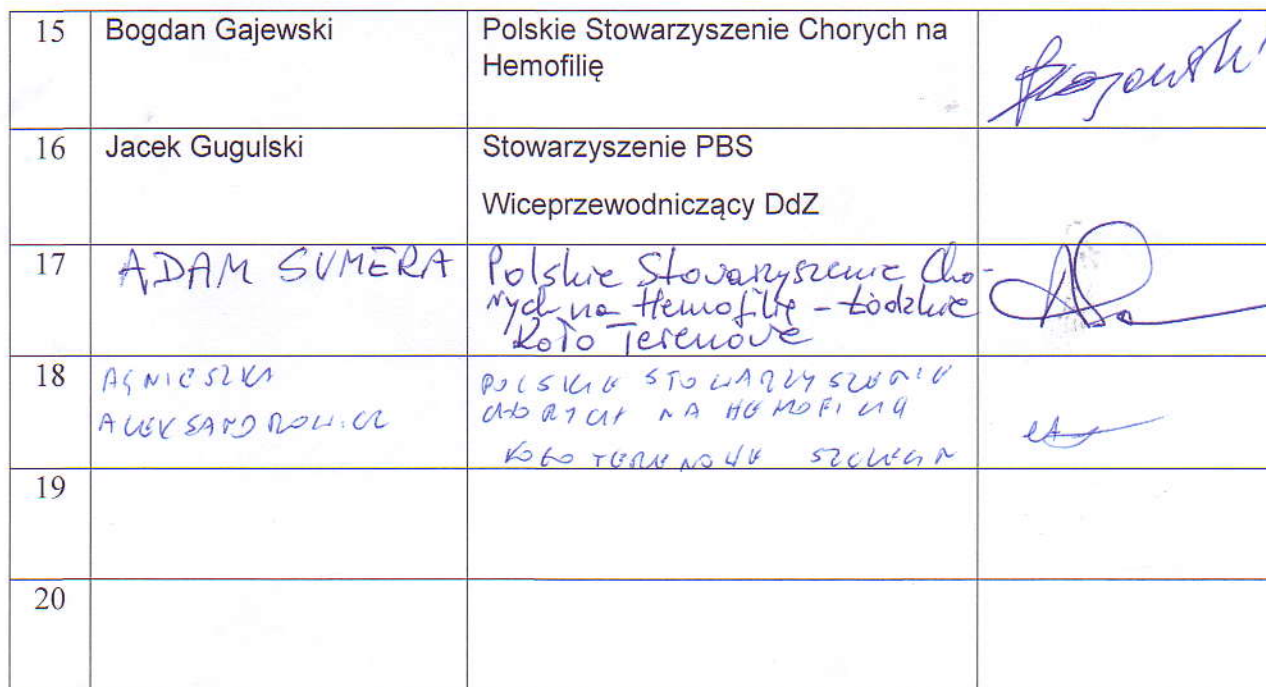 15 Bogdan Gajewski Polskie Stowarzyszenie Chorych na
Hemofilię
16 Jacek Gugulski Stowarzyszenie PBS
Wiceprzewodniczący DdZ
17 ADAM SUMERA Polskie Stowarzyszenie Cho-
rych na Hemofilię - Łódzkie
Koło Terenowe
18 AGNIESZKA POLSKIE STOWARZYSZENIE
ALEKSANDROWICZ CHORYCH NA HEMOFILIĘ
KOŁO TERENOWE SZCZECIN
19
20